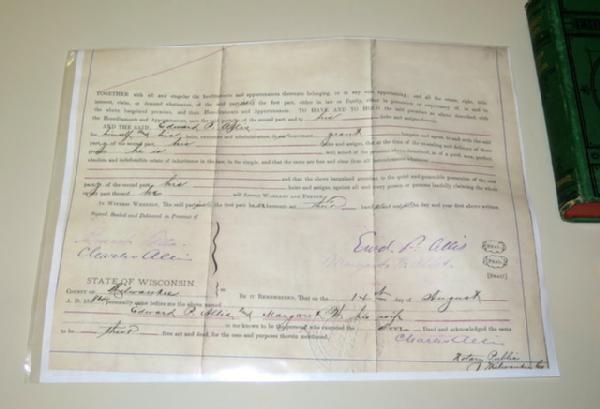 TOGETHER with all and singular the hereditaments and appurtenances thereunto belonging, or in any wise appertaining; and all the estate, right, title
interest, claim, or demand whatsoever, of the said party of the first part, either in law or equity, either in possession or expectancy of, in and to
the above bargained premises, and their Hereditaments and Appurtenances. TO HAVE AND TO HOLD the said premises as above described, with
the Hereditaments and Appurtenances, unto the said party of the second part and to his heirs and assigns
AND THE SAID, Edward P. Allis
for himself and his heirs, executors and administrators do covenant, grant bargain and agree to and with the said
party of the second part, his heirs and assigns, that at the time of the ensealing and delivery of these
he is
absolute and indefeasible estate of inheritance in the law, in fee simple, and that the same are free and clear from all incumbrances whatever,
and that the above bargained premises in the quiet and peaceable possession of the said
party of the second part, his heirs and assigns, against all and every person or persons lawfully claiming the whole
or any part thereof he will forever WARRANT AND DEFEND.
IN WITNESS WHEREOF, The said part of the first part ha hereunto set their hand and seal the day and year first above written.
Signed, Sealed and Delivered in Presence of
Edwd P. Allis [Seal]
Charles Allis Margaret W. Allis [Seal]
[Seal]
STATE OF WISCONSIN
COUNTY OF Milwaukee } ss BE IT REMEMBERED, That on the 14th day of August
A. D. 18 personally came before me the above named
Edward P. Allis and Margaret W. his wife
to me known to be the persons who executed the Deed and acknowledged the same
to be their free act and deed, for the uses and purposes therein mentioned.
Charles Allis
Notary Public
Milwaukee Co